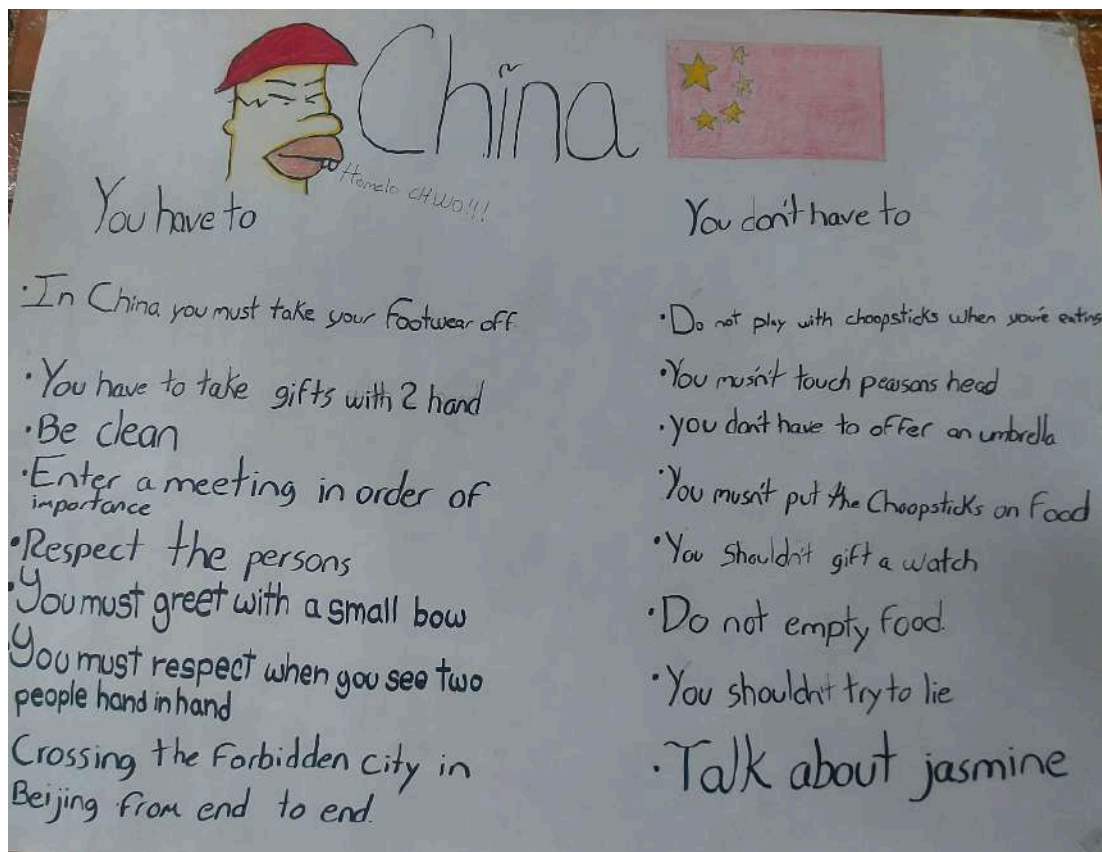 China
Homelo CHWO!!!
You have to
• In China you must take your footwear off
• You have to take gifts with 2 hand
• Be clean
• Enter a meeting in order of
importance
• Respect the persons
• You must greet with a small bow
You must respect when you see two
people hand in hand
Crossing the Forbidden city in
Beijing from end to end.
You don't have to
• Do not play with choopsticks when you're eating
• You musn't touch peasons head
• you don't have to offer an umbrella
• You musn't put the Choopsticks on food
• You shouldn't gift a watch
• Do not empty food.
• You shouldn't try to lie
• Talk about jasmine